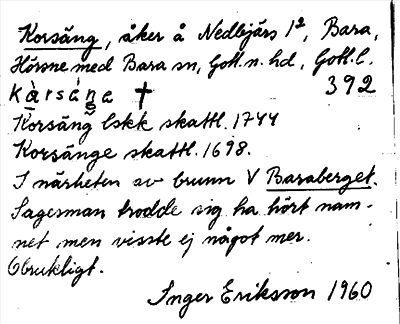 Korsäng, åker å Nedbjärs 1², Bara,
Hörsne med Bara sn, Gotl. n. hd, Gotl. l.
kàrsáŋa † 392
Korsäng lskk skattl. 1744
Korsänge skattl. 1698.
I närheten av brunn V Baraberget.
Sagesman trodde sig ha hört nam-
net men visste ej något mer.
Obrukligt.
Inger Eriksson 1960